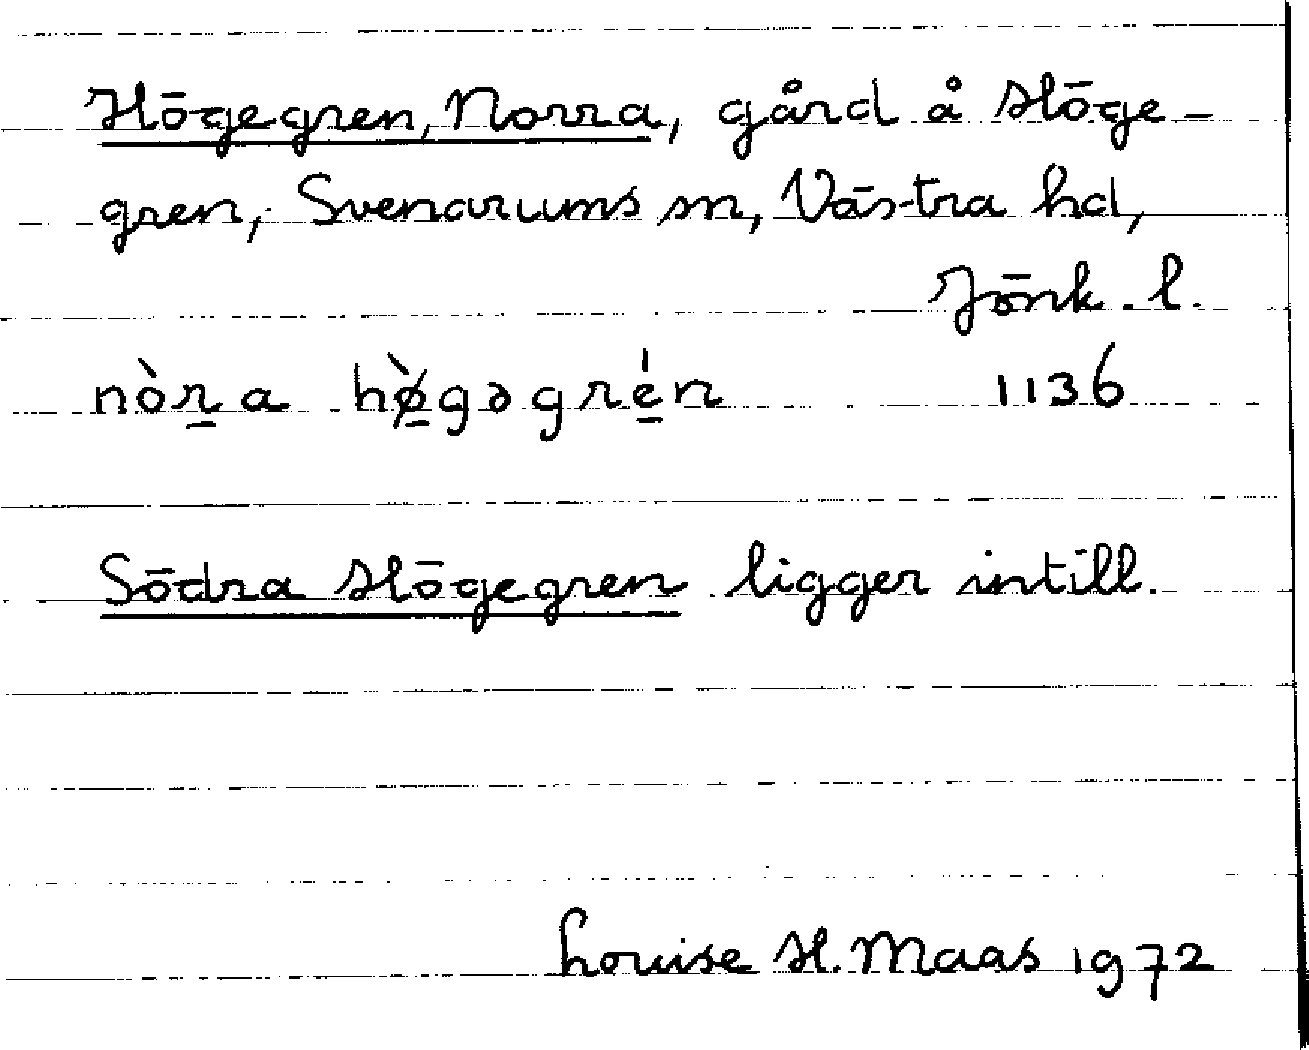 Högegren, Norra, gård å Höge-
gren, Svenarums sn, Västra hd,
Jönk. l.
nòr̠a hø̠̀gəgré̠n 1136
Södra Högegren ligger intill.
Louise H. Maas 1972